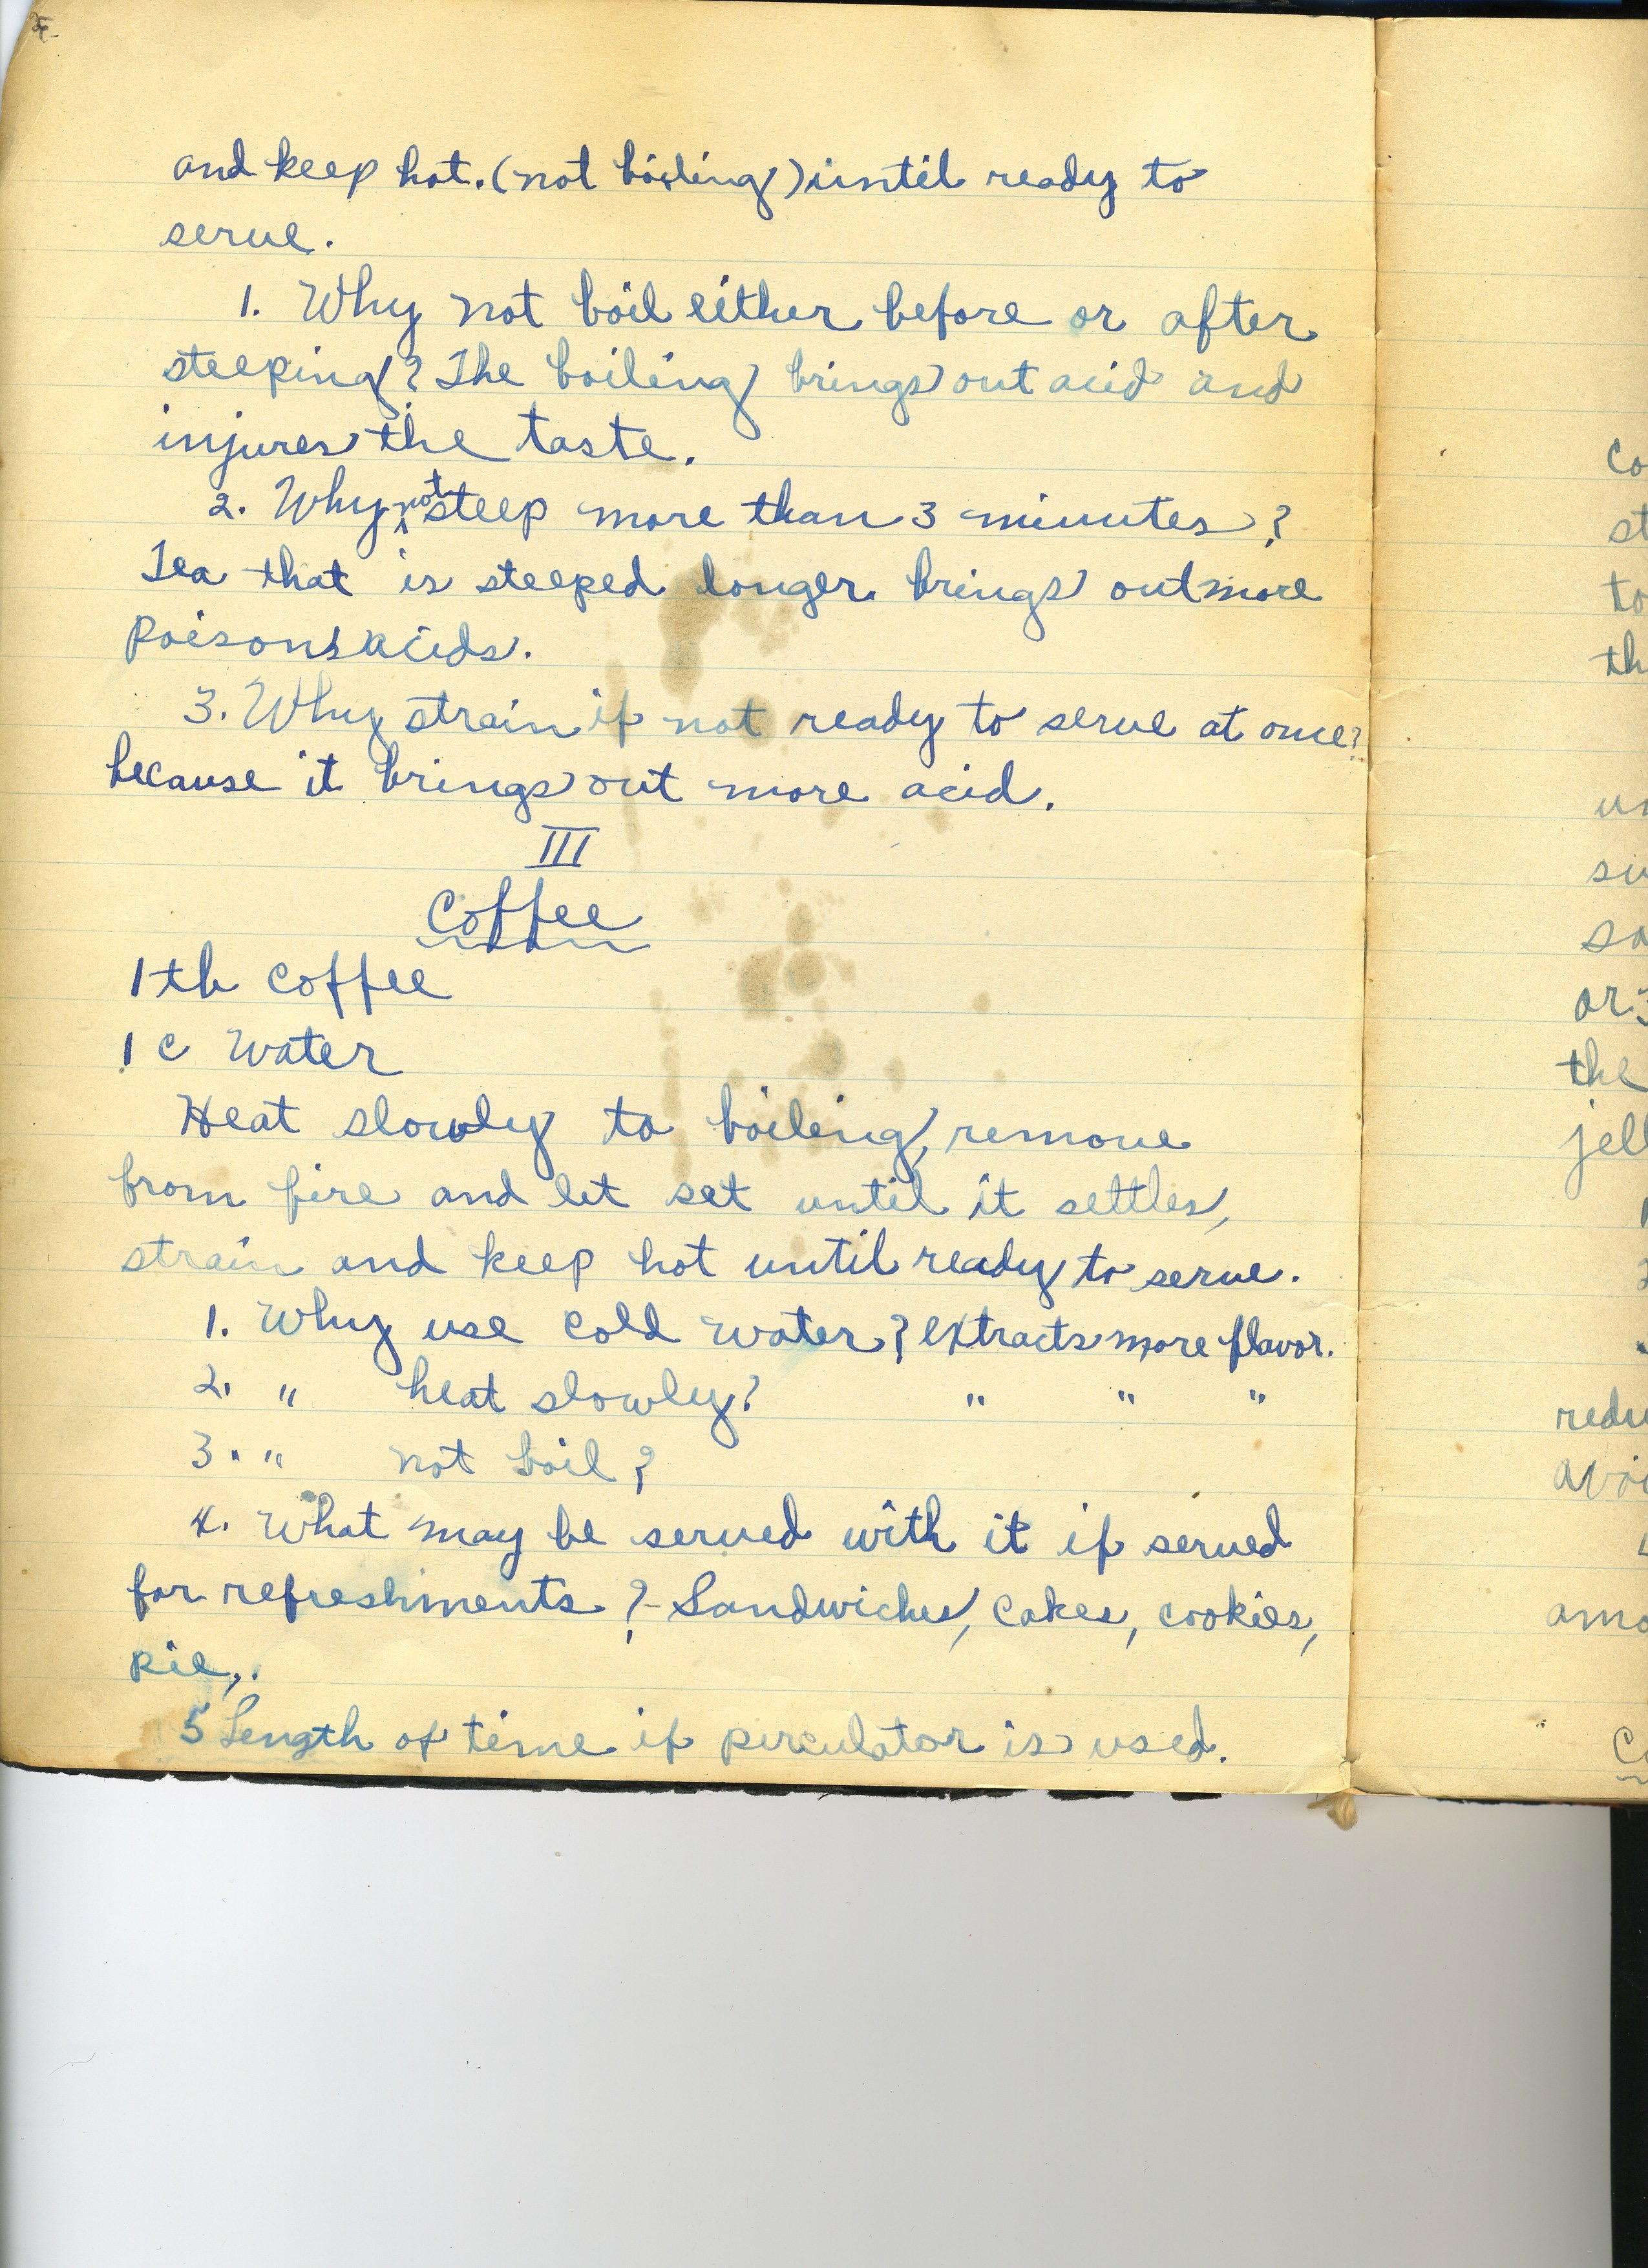 and keep hot. (not boiling) until ready to
serve.
1. Why not boil either before or after
steeping? The boiling brings out acid and
injures the taste.
2. Why not steep more than 3 minutes?
Tea that is steeped longer brings out more
poisons acids.
3. Why strain if not ready to serve at once?
because it brings out more acid.
III
Coffee
1 tb coffee
1 c water
Heat slowly to boiling, remove
from fire and let set until it settles,
strain and keep hot until ready to serve.
1. Why use cold water? extracts more flavor.
2. " heat slowly? " " "
3. " not boil?
4. What may be served with it if served
for refreshments? - Sandwiches, cakes, cookies,
pie,.
5 Length of time if perculator is used.
co
st
to
th
un
so
or 3
the
jell
redu
avoi
amo